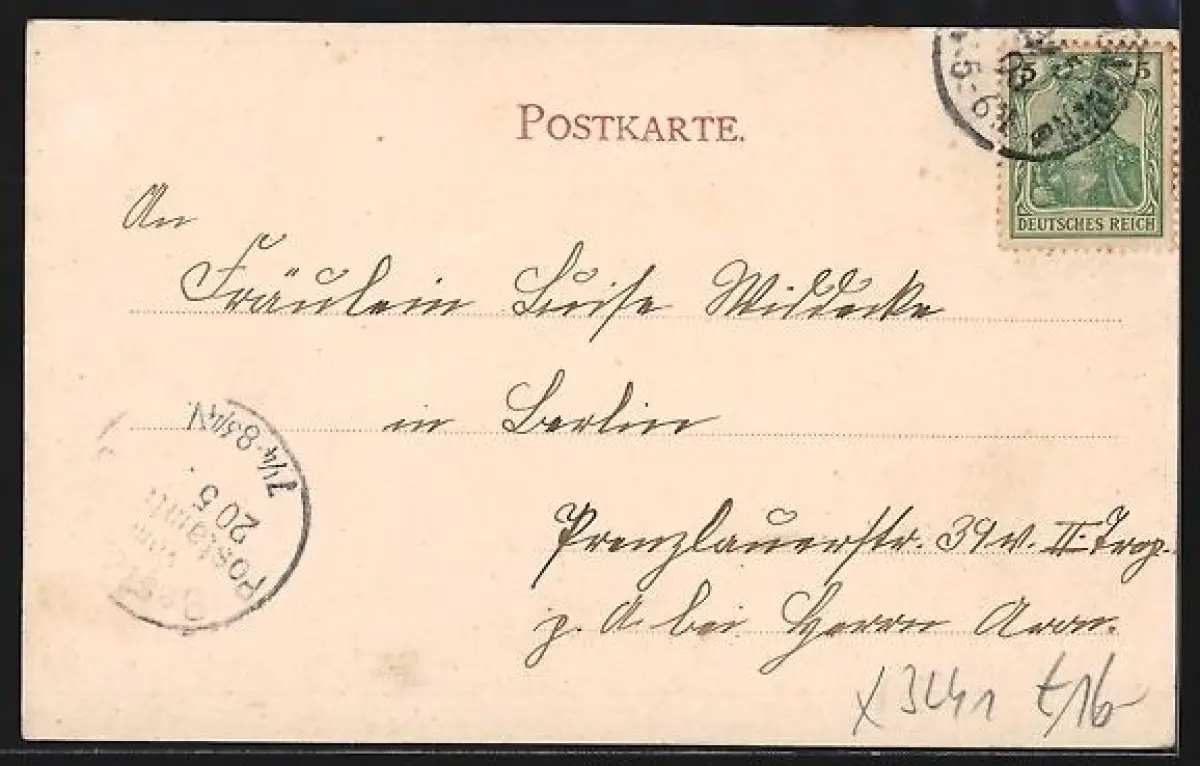 POSTKARTE.
5 5
DEUTSCHES REICH
An
Fräulein Luise Widdecke
in Berlin
Prenzlauerstr. 39 v. II. Trep.
z. A. bei Herrn Aron.
7¼-8¾V.
20 5
Postamt
x3441 t/16